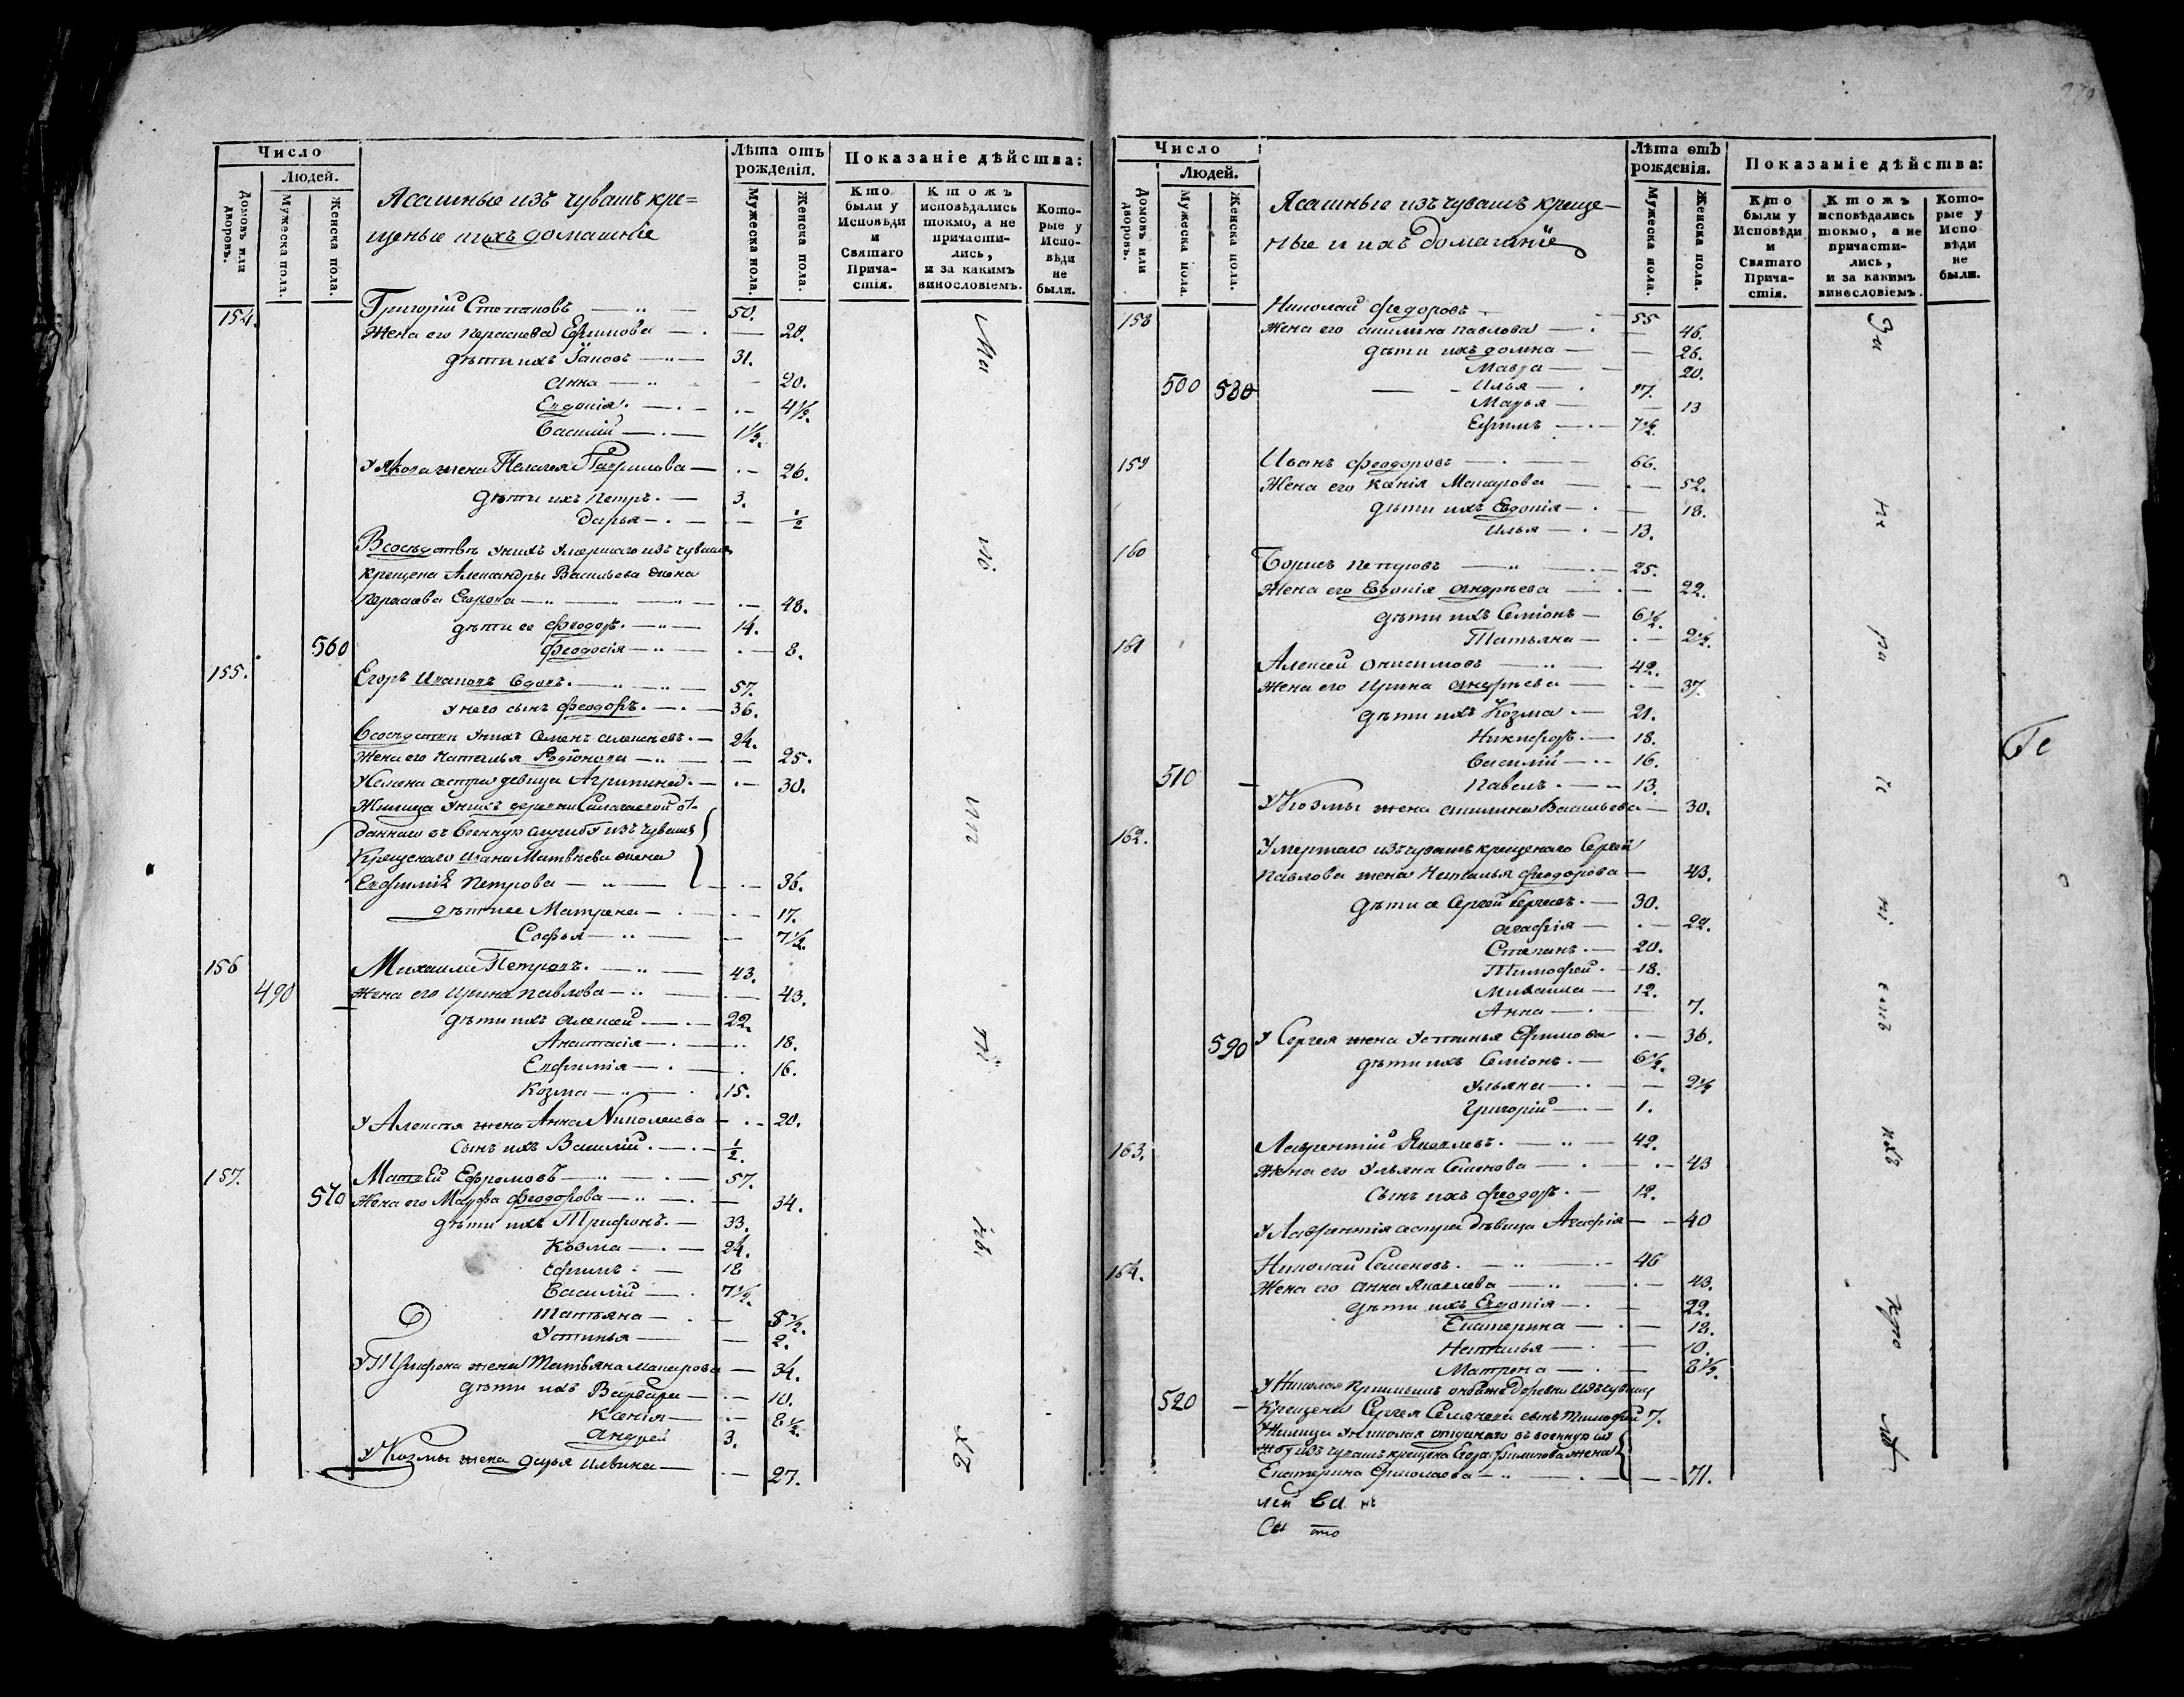 Число
Людей.
Домовъ или дворовъ.
Мужеска пола.
Женска пола.
Ясашные изъ чувашъ кре=
щеные и ихъ домашніе
Лѣта отъ рожденія.
Мужеска пола.
Женска пола.
Показаніе дѣйства:
Кто были у Исповѣди и Святаго Причастія.
Ктожъ исповѣдались токмо, а не причастились, и за какимъ винословіемъ.
Которые у Исповѣди не были.
154. Григорій Степановъ 50.
Жена его Ефимова 28.
дѣти ихъ 31.
Анна 20.
Евдокія 4½.
Василій 1½.
жена Пелагея Гаврилова 26.
дѣти ихъ Петръ 3.
Дарья ½
у нихъ умершаго изъ чувашъ
крещена Александры Васильева жена
Егорова 48.
дѣти ее Феодоръ. 14.
560 Феодосія 8.
155. Егоръ Ивановъ вдовъ. 57.
У него сынъ Феодоръ. 36.
у нихъ Семенъ Алексѣевъ. 24.
Жена его Наталья Родіонова 25.
У Семена сестра девица Агрипина. 30.
у нихъ деревни от-
даннаго въ военную службу изъ чувашъ
Крещенаго Ивана Матвѣева жена
Евфимія Петрова 36.
дѣти ее Матрена 17.
Софья 7½.
156 Михаила Петровъ. 43.
490 Жена его Ирина Павлова 43.
дѣти ихъ Алексей 22.
Анастасія 18.
Евфимія 16.
Козма 15.
У Алексѣя жена Анна Николаева 20.
Сынъ ихъ Василій. ½.
157. Матвей Ефремовъ 57.
570 Жена его Марфа Феодорова 34.
дѣти ихъ Трифонъ. 33.
Козма 24.
Ефимъ 18
Василій 7½.
Татьяна 8½.
Устинья 2.
У Трифона жена Татьяна Макарова 34.
дѣти ихъ Варвара 10.
Ксенія 8½.
Андрей 3.
У Козмы жена Дарья 27.
Число
Людей.
Домовъ или дворовъ.
Мужеска пола.
Женска пола.
Ясашные изъ чувашъ креще-
ные и ихъ домашніе
Лѣта отъ рожденія.
Мужеска пола.
Женска пола.
Показаніе дѣйства:
Кто были у Исповѣди и Святаго Причастія.
Ктожъ исповѣдались токмо, а не причастились, и за какимъ винословіемъ.
Которые у Исповѣди не были.
158 Николай Федоровъ 55
Жена его Акилина Павлова 46.
дѣти ихъ Домна 26.
Мавра 20.
500 580 Илья 17.
Марья 13
Ефимъ 7½.
159 Иванъ Феодоровъ 66.
Жена его Ксенія Макарова 52.
дѣти ихъ Евдокія 18.
Илья 13.
160 Борисъ Петровъ 25.
Жена его Евдокія Андрѣева 22.
дѣти ихъ Семіонъ 6½.
Татьяна 2½.
161 Алексей Онисимовъ 42.
Жена его Ирина Андрѣева 37.
дѣти ихъ Козма 21.
Никифоръ. 18.
Василій 16.
510 Павелъ. 13.
У Козмы жена Акилина Васильева 30.
162. Умершаго изъ чувашъ крещенаго Сергея
Павлова жена Наталья Феодорова 43.
дѣти ея Сергей Сергеевъ. 30.
Агафія 22.
Степанъ. 20.
Тимофей. 18.
Михаила 12.
Анна 7.
590 У Сергея жена Устинья Ефимова 36.
дѣти ихъ Семіонъ. 6½.
Ульяна 2½
Григорій 1.
163. Лаврентій Яковлевъ. 42.
Жена его Ульяна Семенова 43
Сынъ ихъ Феодоръ. 12.
У Лаврентія сестра дѣвица Агафія 40
164. Николай Семеновъ. 46
Жена его Анна Яковлева 43.
дѣти ихъ Евдокія 22.
Екатерина 12.
Наталья 10.
Матрена 8½.
У Николая деревни изъ чувашъ
520 Крещена Сергея сынъ Тимофей 7.
у Николая отданаго въ военную слу
жбу изъ чувашъ крещена Егора Филипова жена
Екатерина 71.